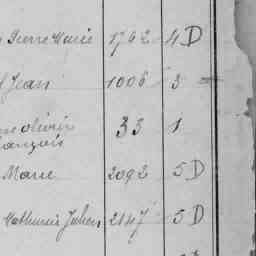 Pierre Marie 1762 4 D
Jean 1006 3
olivier 33 1
françois
Marie 2092 5 D
Mathurin Julien 2147 5 D